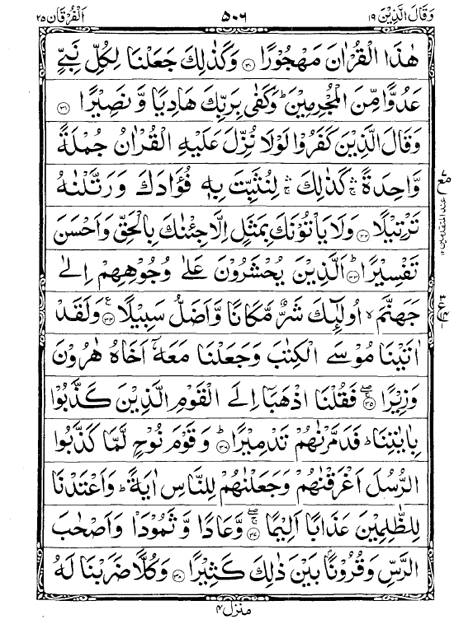 وَقَالَ الَّذِيْنَ ١٩ ٥٠٦ اَلْفُرْقَان ٢٥
هٰذَا الْقُرْاٰنَ مَهْجُوْرًا ۝٣٠ وَكَذٰلِكَ جَعَلْنَا لِكُلِّ نَبِيٍّ
عَدُوًّا مِّنَ الْمُجْرِمِيْنَ ؕ وَكَفٰى بِرَبِّكَ هَادِيًا وَّنَصِيْرًا ۝٣١
وَقَالَ الَّذِيْنَ كَفَرُوْا لَوْلَا نُزِّلَ عَلَيْهِ الْقُرْاٰنُ جُمْلَةً
وَّاحِدَةً ۛ كَذٰلِكَ ۛ لِنُثَبِّتَ بِهٖ فُؤَادَكَ وَرَتَّلْنٰهُ
تَرْتِيْلًا ۝٣٢ وَلَا يَاْتُوْنَكَ بِمَثَلٍ اِلَّا جِئْنٰكَ بِالْحَقِّ وَاَحْسَنَ
تَفْسِيْرًا ۝٣٣ اَلَّذِيْنَ يُحْشَرُوْنَ عَلٰى وُجُوْهِهِمْ اِلٰى
جَهَنَّمَ ۙ اُولٰٓئِكَ شَرٌّ مَّكَانًا وَّاَضَلُّ سَبِيْلًا ۝٣٤ وَلَقَدْ
اٰتَيْنَا مُوْسَى الْكِتٰبَ وَجَعَلْنَا مَعَهٗٓ اَخَاهُ هٰرُوْنَ
وَزِيْرًا ۝٣٥ فَقُلْنَا اذْهَبَآ اِلَى الْقَوْمِ الَّذِيْنَ كَذَّبُوْا
بِاٰيٰتِنَا ؕ فَدَمَّرْنٰهُمْ تَدْمِيْرًا ۝٣٦ وَقَوْمَ نُوْحٍ لَّمَّا كَذَّبُوا
الرُّسُلَ اَغْرَقْنٰهُمْ وَجَعَلْنٰهُمْ لِلنَّاسِ اٰيَةً ؕ وَاَعْتَدْنَا
لِلظّٰلِمِيْنَ عَذَابًا اَلِيْمًا ۝٣٧ وَّعَادًا وَّثَمُوْدَا۟ وَاَصْحٰبَ
الرَّسِّ وَقُرُوْنًۢا بَيْنَ ذٰلِكَ كَثِيْرًا ۝٣٨ وَكُلًّا ضَرَبْنَا لَهُ
منزل ٤